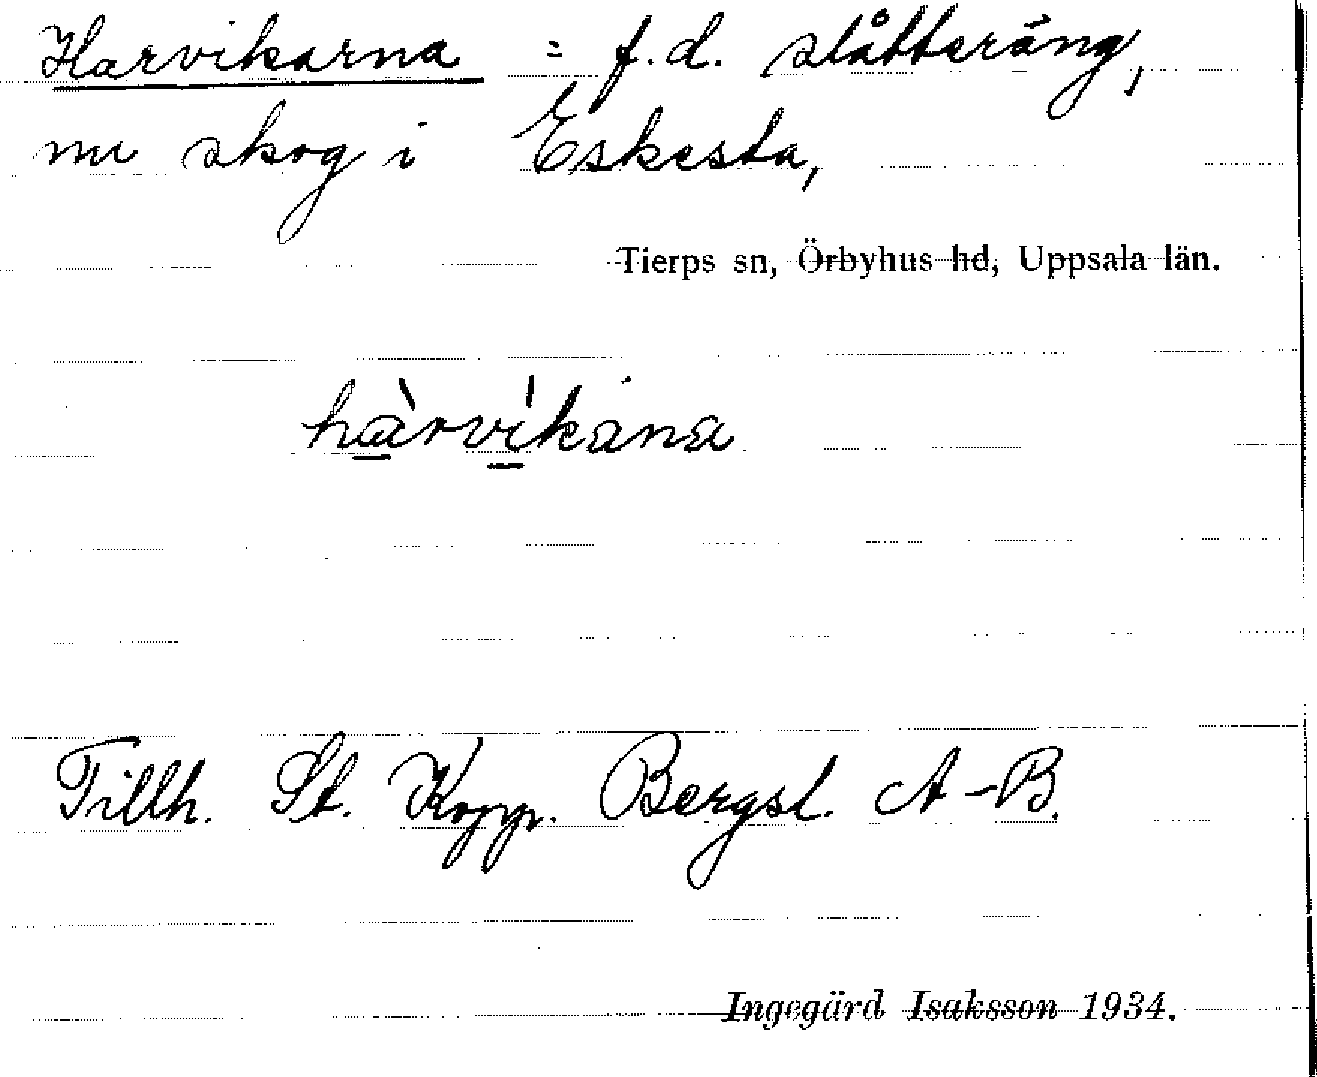 Harvikarna = f.d. slåtteräng,
nu skog i Eskesta,
Tierps sn, Örbyhus hd, Uppsala län.
hàrvíkana
Tillh. St. Kopp. Bergsl. A-B.
Ingegärd Isaksson 1934.